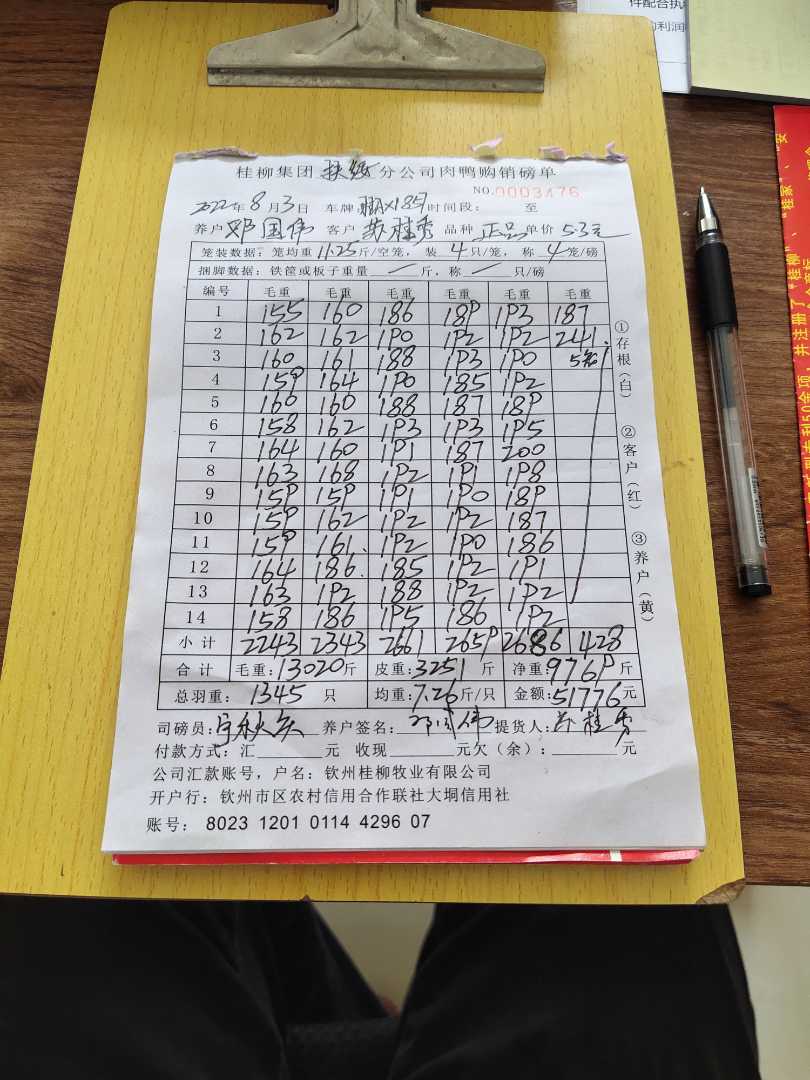 件配合执
的利润
桂柳集团扶绥分公司肉鸭购销磅单
NO.0003476
2022年8月3日 车牌 时间段: 至
养户 邓国伟 客户 苏桂秀 品种 正品 单价 5.3元
笼装数据: 笼均重 11.25 斤/空笼, 装 4 只/笼, 称 4 笼/磅
捆脚数据: 铁筐或板子重量 — 斤, 称 — 只/磅
编号 毛重 毛重 毛重 毛重 毛重 毛重
1 155 160 186 189 193 187
2 162 162 190 192 192 241.
3 160 161 188 193 190 5笼
4 159 164 190 185 192
5 160 160 188 187 189
6 158 162 193 193 195
7 164 160 191 187 200
8 163 168 192 191 198
9 159 159 191 190 189
10 159 162 192 192 187
11 159 161 192 190 186
12 164 186 185 192 191
13 163 192 188 192 192
14 158 186 195 186 192
小计 2243 2343 2661 2659 2686 428
合计 毛重:13020斤 皮重:3251斤 净重:9769斤
总羽重: 1345 只 均重:7.26斤/只 金额:51776元
司磅员: 养户签名:邓国伟 提货人:苏桂秀
付款方式: 汇 元 收现 元欠(余): 元
公司汇款账号, 户名: 钦州桂柳牧业有限公司
开户行: 钦州市区农村信用合作联社大垌信用社
账号: 8023 1201 0114 4296 07
①存根(白)
②客户(红)
③养户(黄)